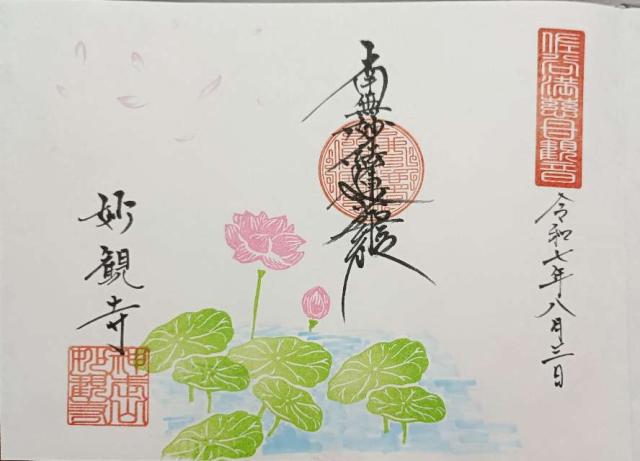 佐谷満慈母観音
令和七年八月三日
南無妙法蓮華経
妙觀寺